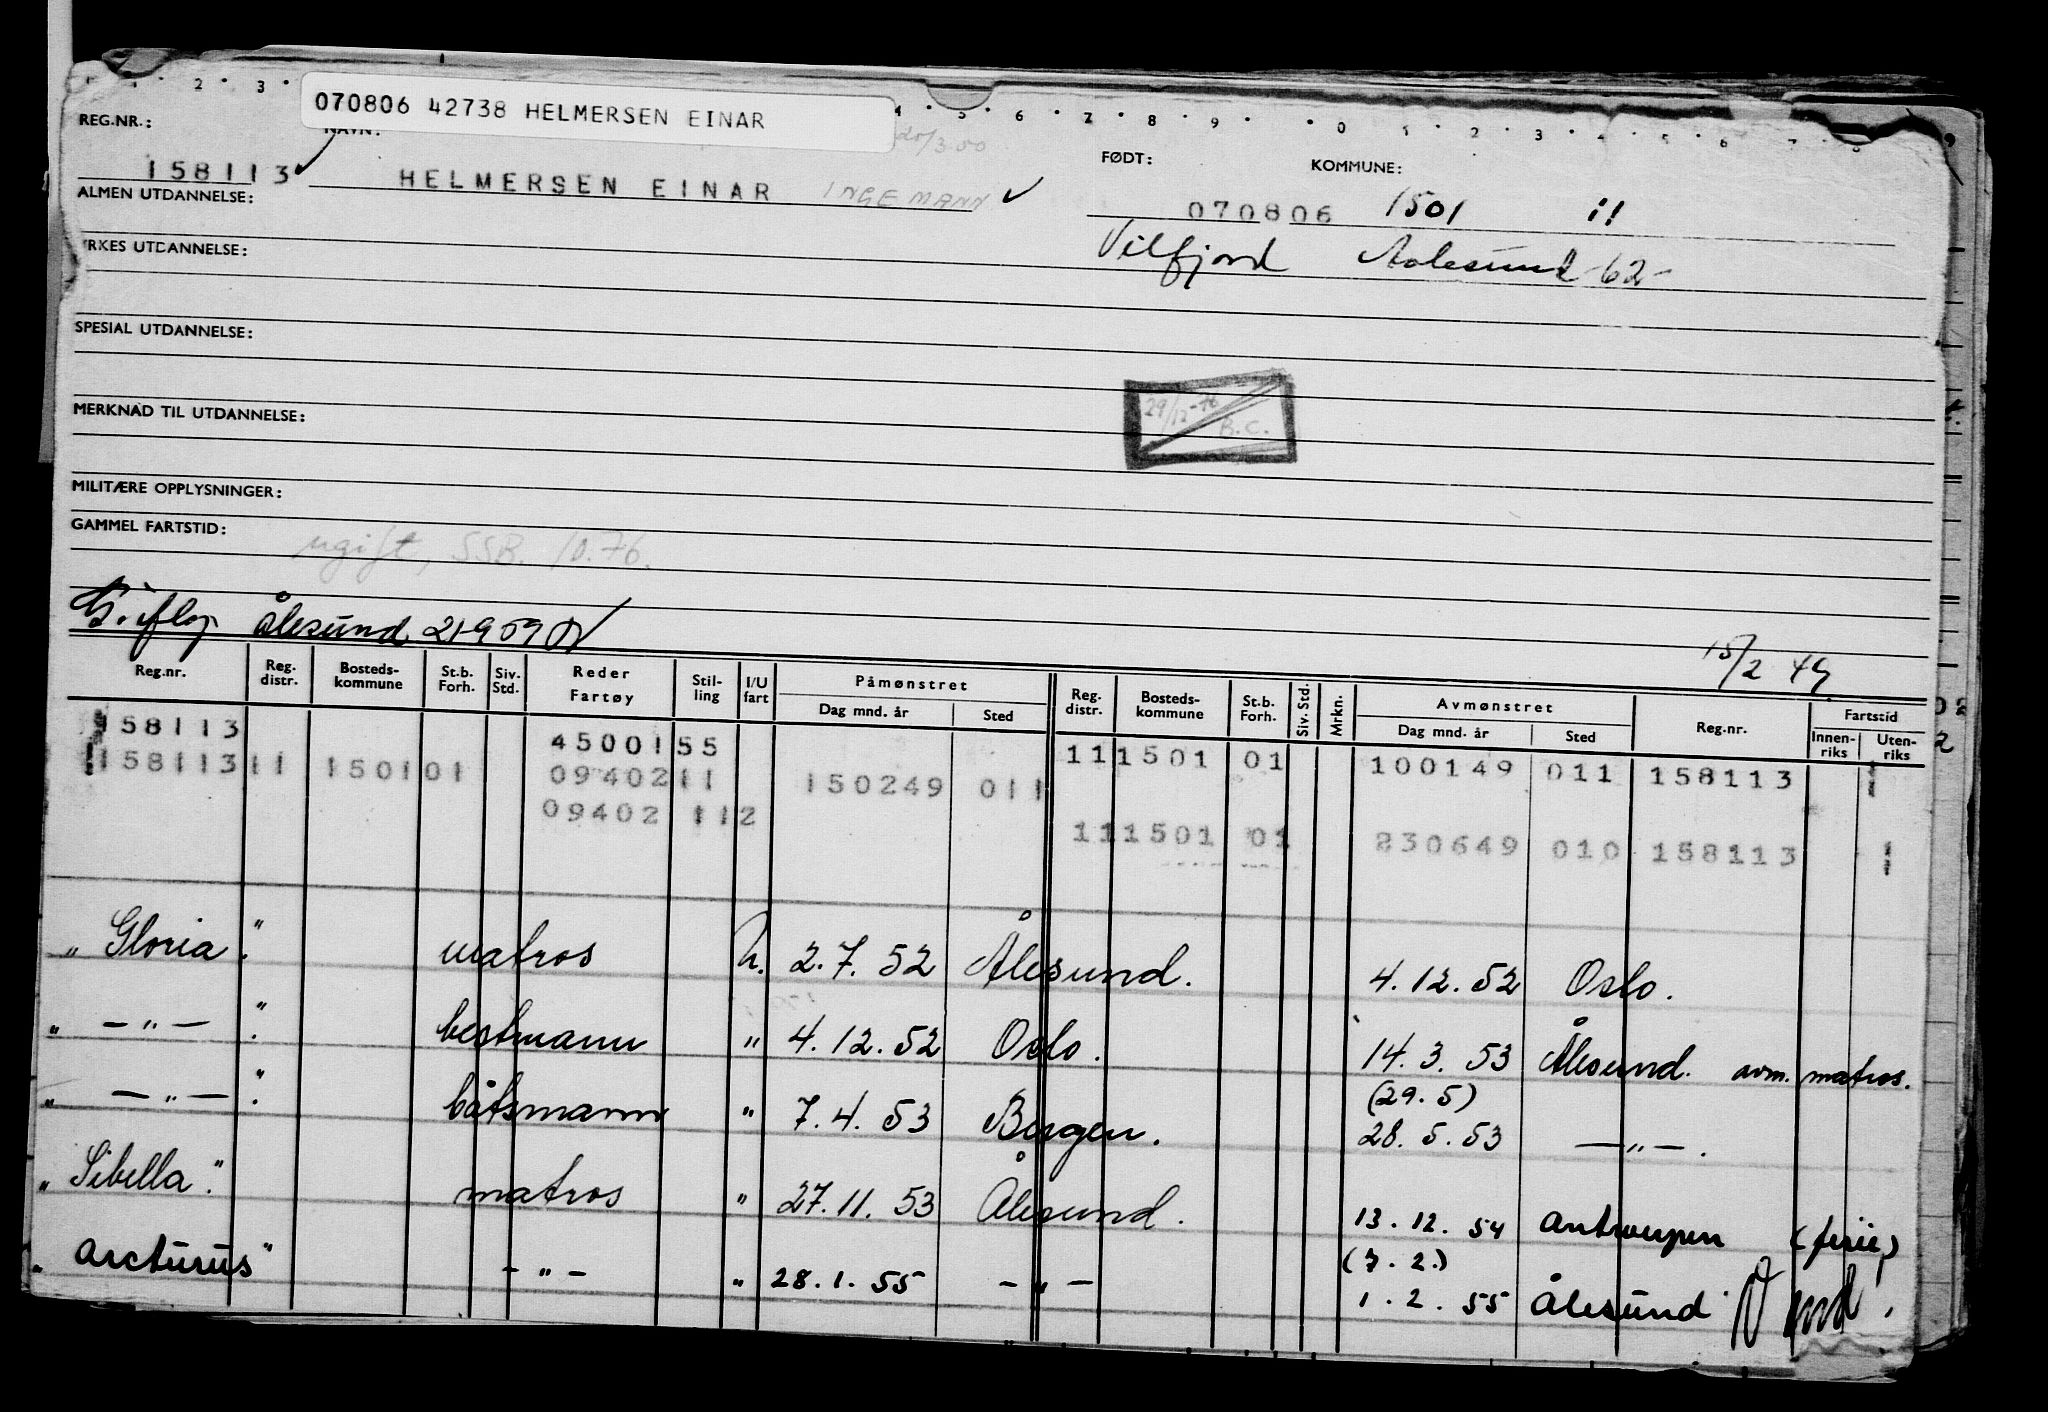 1 2 3 4 5 6 7 8 9 0 1 2 3 4 5 6 7 8 9
070806 42738 HELMERSEN EINAR
REG.NR.: NAVN: FØDT: KOMMUNE:
158113 HELMERSEN EINAR INGEMANN 070806 1501 11
ALMEN UTDANNELSE:
Vilfjord Aalesund -62-
YRKES UTDANNELSE:
SPESIAL UTDANNELSE:
29/12-76 B.C.
MERKNAD TIL UTDANNELSE:
MILITÆRE OPPLYSNINGER:
GAMMEL FARTSTID:
ugift, SSB. 10.76.
Ålesund 21959
15/2 49
Reg.nr. Reg. distr. Bosteds-kommune St.b. Forh. Siv. Std. Reder Fartøy Stil-ling I/U fart Påmønstret Dag mnd. år Sted Reg. distr. Bosteds-kommune St.b. Forh. Siv. Std. Mrkn. Avmønstret Dag mnd. år Sted Reg.nr. Fartstid Innen-riks Uten-riks
158113 4500155 111501 01 100149 011 158113 1
158113 11 1501 01 0940211 150249 011
09402 112 111501 01 230649 010 158113 1
"Gloria". matros U. 2.7.52 Ålesund. 4.12.52 Oslo.
" — " — ". bestmann " 4.12.52 Oslo. 14.3.53 Ålesund. avm. matros.
(29.5)
" — " — ". båtsmann " 7.4.53 Bergen. 28.5.53 — " — .
"Sibella". matros " 27.11.53 Ålesund. 13.12.54 Antwerpen (ferie)
(7.2.)
"Arcturus" - " - " 28.1.55 - " - 1.2.55 Ålesund